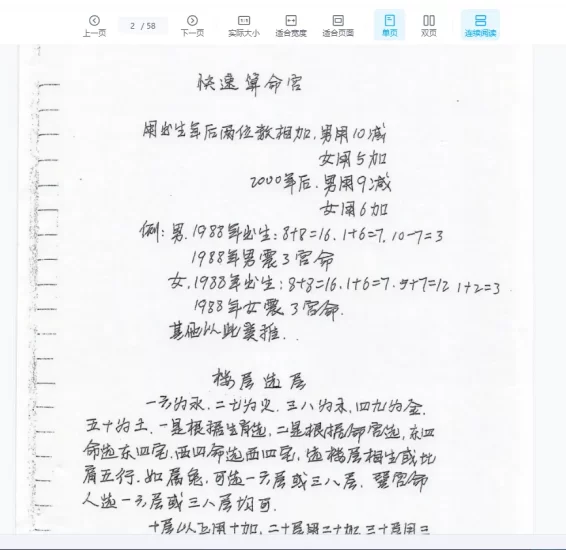 上一页 2 / 58 下一页 实际大小 适合宽度 适合页面 单页 双页 连续阅读
快速算命宫
用出生年后两位数相加.男用10减
女用5加
2000年后.男用9减
女用6加
例:男.1988年出生:8+8=16.1+6=7.10-7=3
1988年男震3宫命
女.1988年出生:8+8=16.1+6=7.5+7=12 1+2=3
1988年女震3宫命.
其他以此类推..
楼层选层
一六为水.二七为火.三八为木.四九为金.
五十为土.一是根据生肖选,二是根据命宫选,东四
命选东四宅,西四命选西四宅,选楼层相生或比
肩五行.如属兔,可选一六层或三八层.震宫命
人选一六层或三八层均可.
十层以上用十加,二十层用二十加 三十层用三